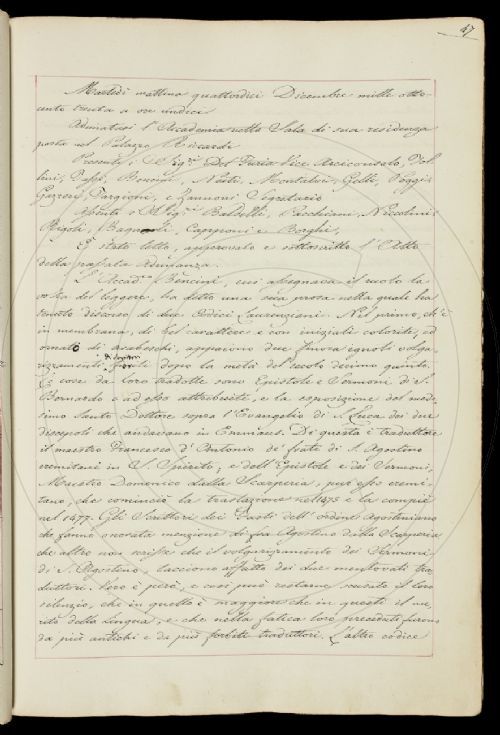 47
Martedì mattina quattordici Dicembre mille otto-
cento trenta a ore undici
Adunatasi l'Accademia nella Sala di sua residenza
posta nel Palazzo Riccardi
Presenti i Sig.ri Del Furia Vice Arciconsolo, Col-
lini, Bencini, Nesti, Montalvi, Gelli, Poggi,
Gazzeri, Targioni, e Zannoni Segretario
Assenti i Sig.ri Baldelli, Pacchiani, Niccolini,
Rigoli, Bagnoli, Capponi e Borghi,
È stato letto, approvato e sottoscritto l'Atto
della passata adunanza.
L'Accad.co Bencini, cui assegnava il ruolo la
volta del leggere, ha letto una sua prosa nella quale ha
tenuto discorso di due Codici Laurenziani. Nel primo, ch'è
in membrana, di bel carattere e con iniziali colorite, ed
ornato di arabeschi, appaiono due finora ignoti volga-
rizzamenti dopo la metà del secolo decimo quinto.
Le cose da loro tradotte sono Epistole e Sermoni di S.
Bernardo o ad esso attribuite, e la esposizione del mede-
simo Santo Dottore sopra l'Evangelio di S. Luca dei due
discepoli che andavano in Emmaus. Di questa è traduttore
il maestro Francesco d'Antonio de' frati di S. Agostino
eremitani in S. Spirito; e dell'Epistole e dei Sermoni,
Maestro Domenico dalla Scarperia, pur esso eremi-
tano, che cominciò la traslazione nel 1475 e la compiè
nel 1477. Gli Scrittori dei Fasti dell'ordine Agostiniano
che fanno onorata menzione di fra Agostino della Scarperia
che altro non scrisse che il volgarizzamento dei Sermoni
di S. Agostino, tacciono affatto dei due mentovati tra-
duttori. Vero è però, e così può restarne scusato il loro
silenzio, che in quello è maggiore che in questi il me-
rito della lingua, e che nella fatica loro preceduti furono
da più antichi e da più forbiti traduttori. L'altro codice